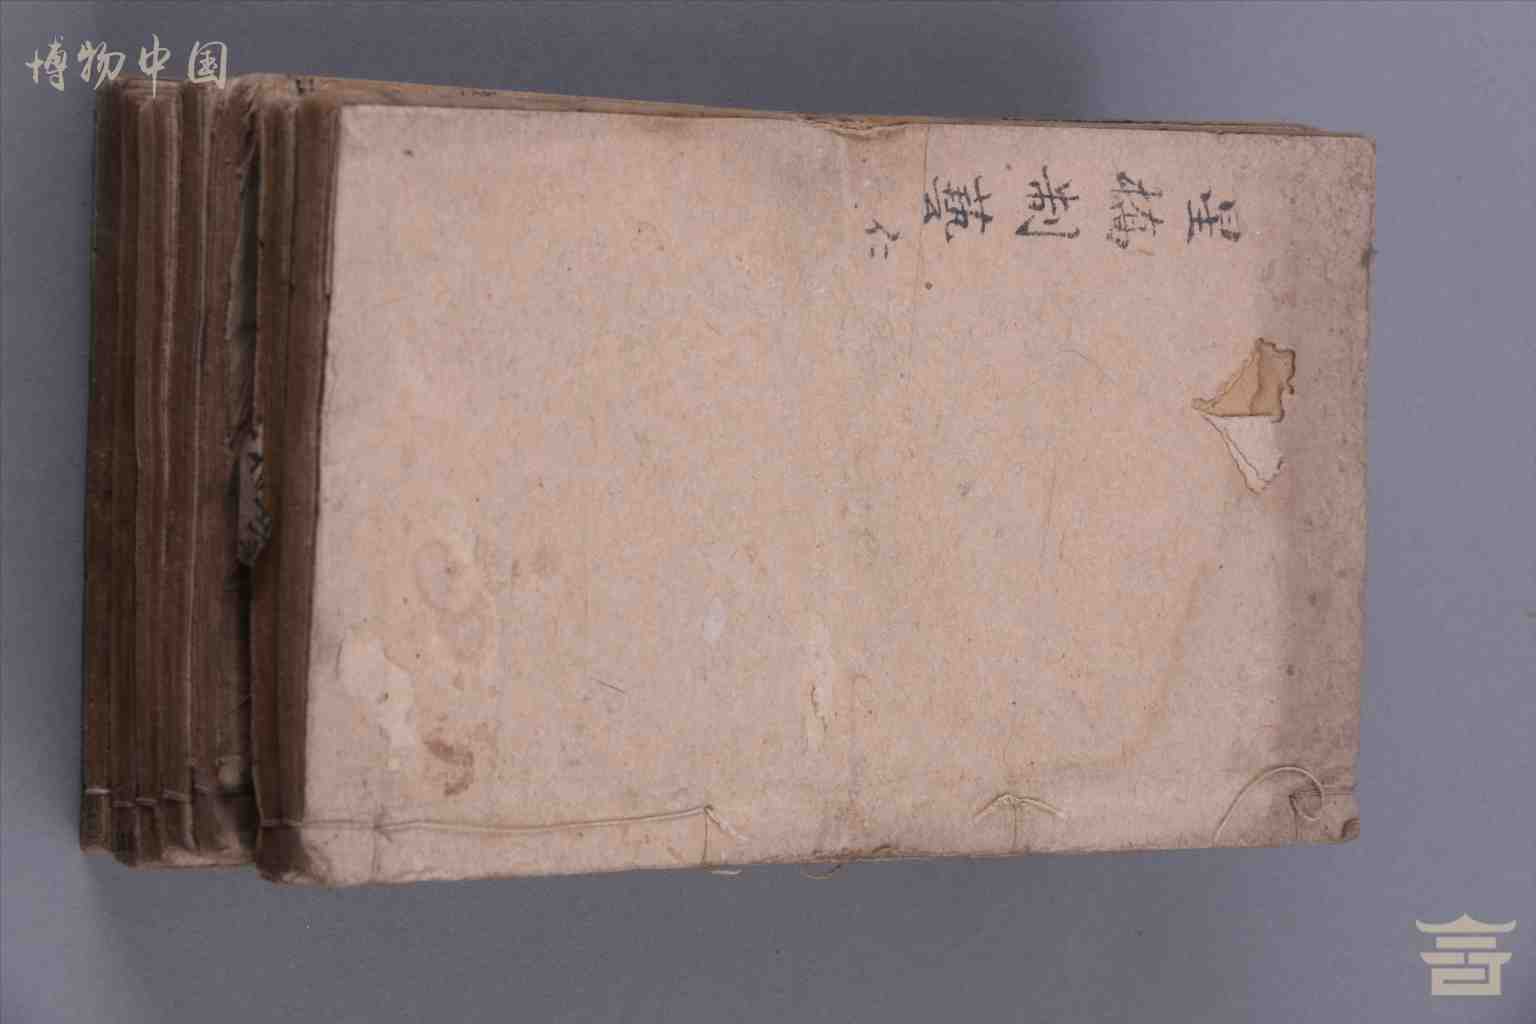 博物中国
星橋制藝 仁